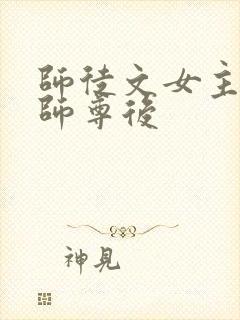 師徒文女主
師尊後
神見